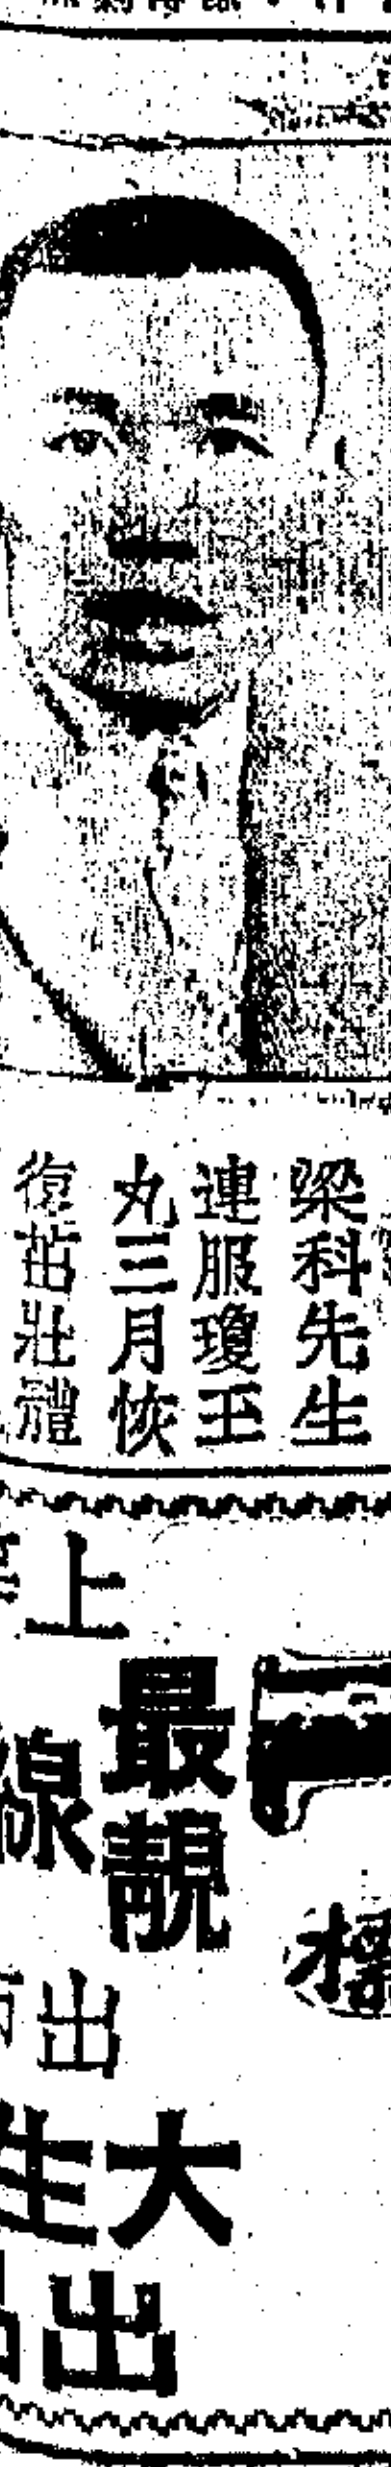 梁科先生
連服瓊玉
丸三月恢
復茁壯體
上
最靚
線
出
大
生
出
標